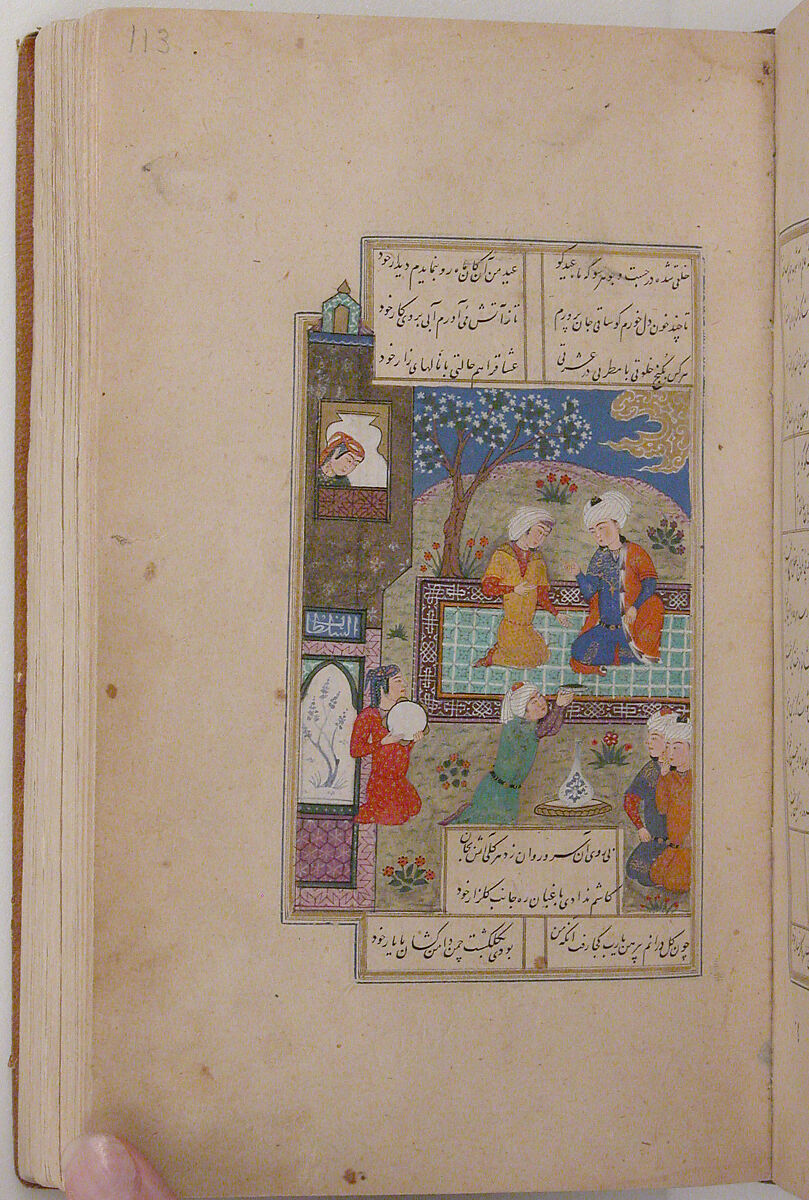 113
خلقی شده در جست و جو هر سو که ماه عید کو
عید من آن کان ماه رو بنمایدم دیدار خود
تا چند خون دل خورم کو ساقی جان پرورم
تا ز آتش می آورم آبی بروی کار خود
هر کس بکنج خلوتی با مطربی در عشرتی
عشاق را هم حالتی با نالهای زار خود
السلطان
بی روی آن سرو روان زد هر گلی آتش بجان
کاشم ندادی باغبان ره جانب گلزار خود
چون گل درانم پیرهن یارب کجا رفت آنکه من
بودی بگلگشت چمن دامن کشان با یار خود